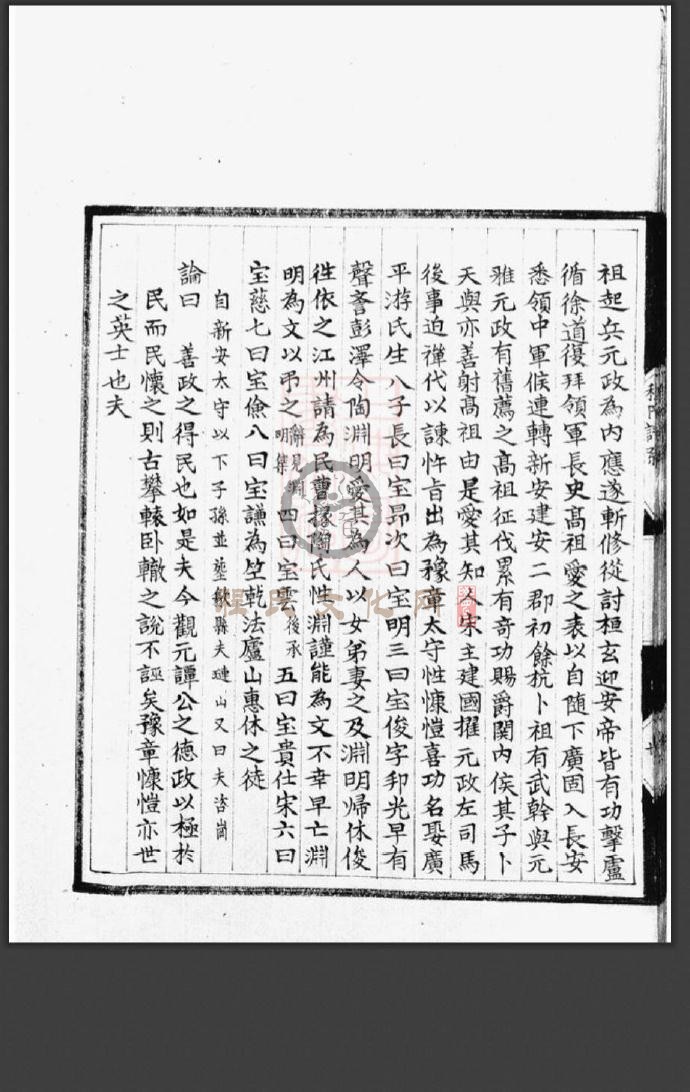 祖起兵元政為内應遂斬修從討桓玄迎安帝皆有功擊盧
循徐道覆拜領軍長史高祖愛之表以自随下廣固入長安
悉領中軍候連轉新安建安二郡初餘杭卜祖有武幹與元
雅元政有舊薦之高祖征伐累有奇功賜爵関内侯其子卜
天與亦善射高祖由是愛其知人宋主建國擢元政左司馬
後事迫禪代以諫忤旨出為豫章太守性慷慨喜功名娶廣
平游氏生八子長曰宝昂次曰宝明三曰宝俊字邦光早有
聲咅彭澤令陶淵明愛其為人以女弟妻之及淵明帰休俊
徃依之江州請為民曹掾陶氏性淵謹能為文不幸早亡淵
明為文以弔之辭見淵明集四曰宝雲後承五曰宝貴仕宋六曰
宝慈七曰宝儉八曰宝謙為竺乾法廬山惠休之徒
自新安太守以下子孫並塟歙縣夫㻌山又曰夫咨崗
論曰 善政之得民也如是夫今觀元譚公之德政以極於
民而民懷之則古攀轅卧轍之說不誣矣豫章慷慨亦世
之英士也夫
程氏譜系
程民文化庫